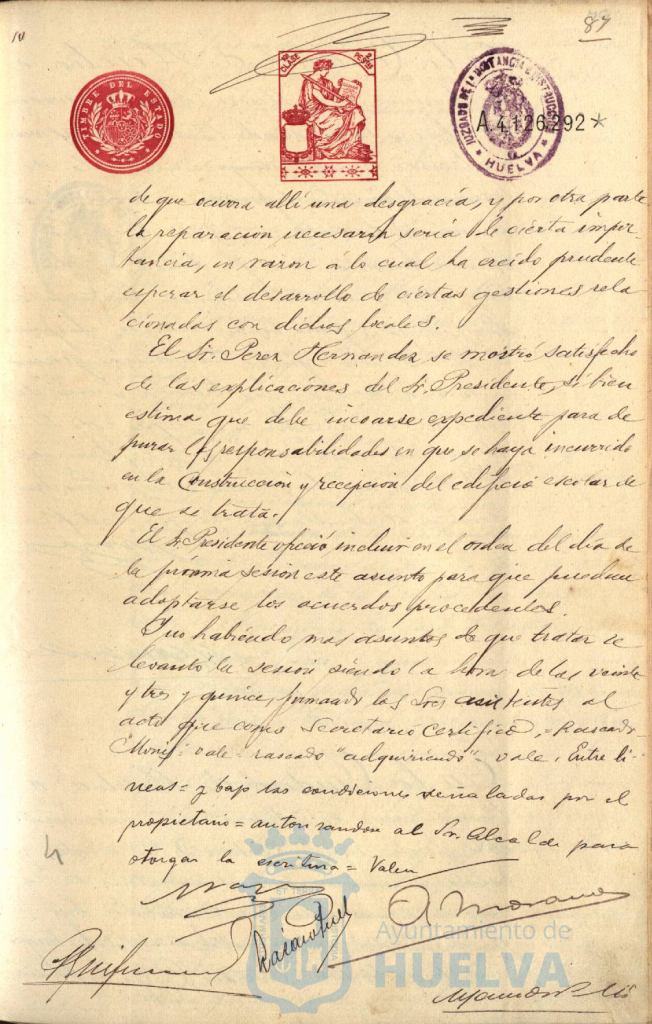 10
87
TIMBRE DEL ESTADO
1ª CLASE
PESETAS
JUZGADO DE 1ª INSTANCIA E INSTRUCCION
HUELVA
A.4.126.292*
de que ocurra allí una desgracia, y por otra parte
la reparación necesaria seria de cierta impor-
tancia, en razon á lo cual ha creido prudente
esperar el desarrollo de ciertas gestiones rela
cionadas con dichos locales.
El Sr. Perez Hernandez se mostró satisfecho
de las explicaciones del Sr. Presidente, si bien
estima que debe incoarse expediente para de
purar las responsabilidades en que se haya incurrido
en la Construcción y recepción del edificio escolar de
que se trata.
El Sr. Presidente ofreció incluir en el orden del dia de
la próxima sesión este asunto para que puedan
adoptarse los acuerdos procedentes.
Y no habiendo mas asuntos de que tratar se
levantó la sesión siendo la hora de las veinte
y tres y quince, firmando los Sres asistentes al
acto que como Secretario Certifico. = Rascado
vale = rascado "adquiriendo" = vale. Entre li-
neas = y bajo las condiciones señaladas por el
propietario = autorizandose al Sr. Alcalde para
otorgar la escritura = Valen
A. Moreno
Ayuntamiento de
HUELVA